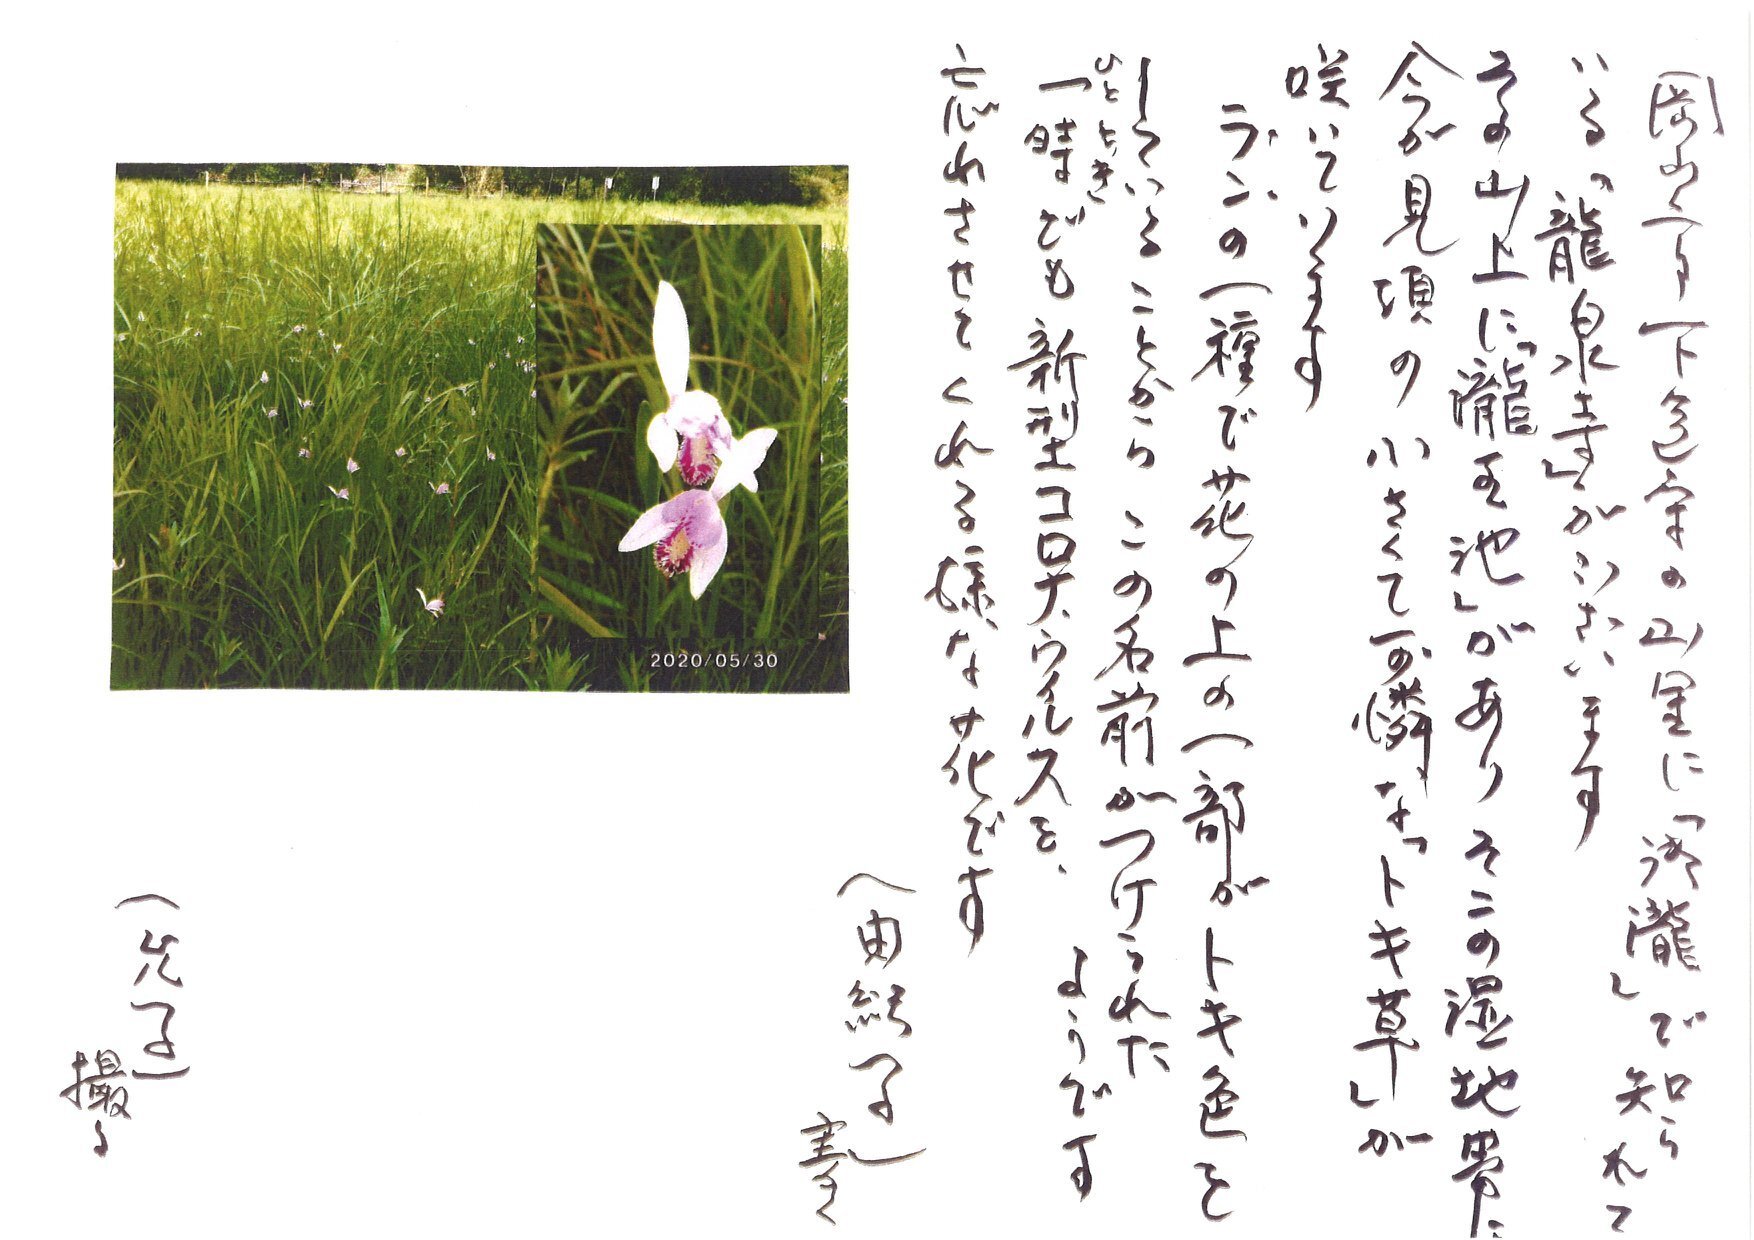 岡山市下足守の山里に「滝瀧」で知られて
いる「龍泉寺」がございます
その山上に「瀧王池」があり そこの湿地帯に
今が見頃の小さくて可憐な「トキ草」が
咲いています
ランの一種で花の上の一部がトキ色を
していることから この名前がつけられた
ようです
ひととき
一時でも新型コロナウイルスを、
忘れさせてくれる様な花です
(由紀子)書く
(光子)撮る
2020/05/30